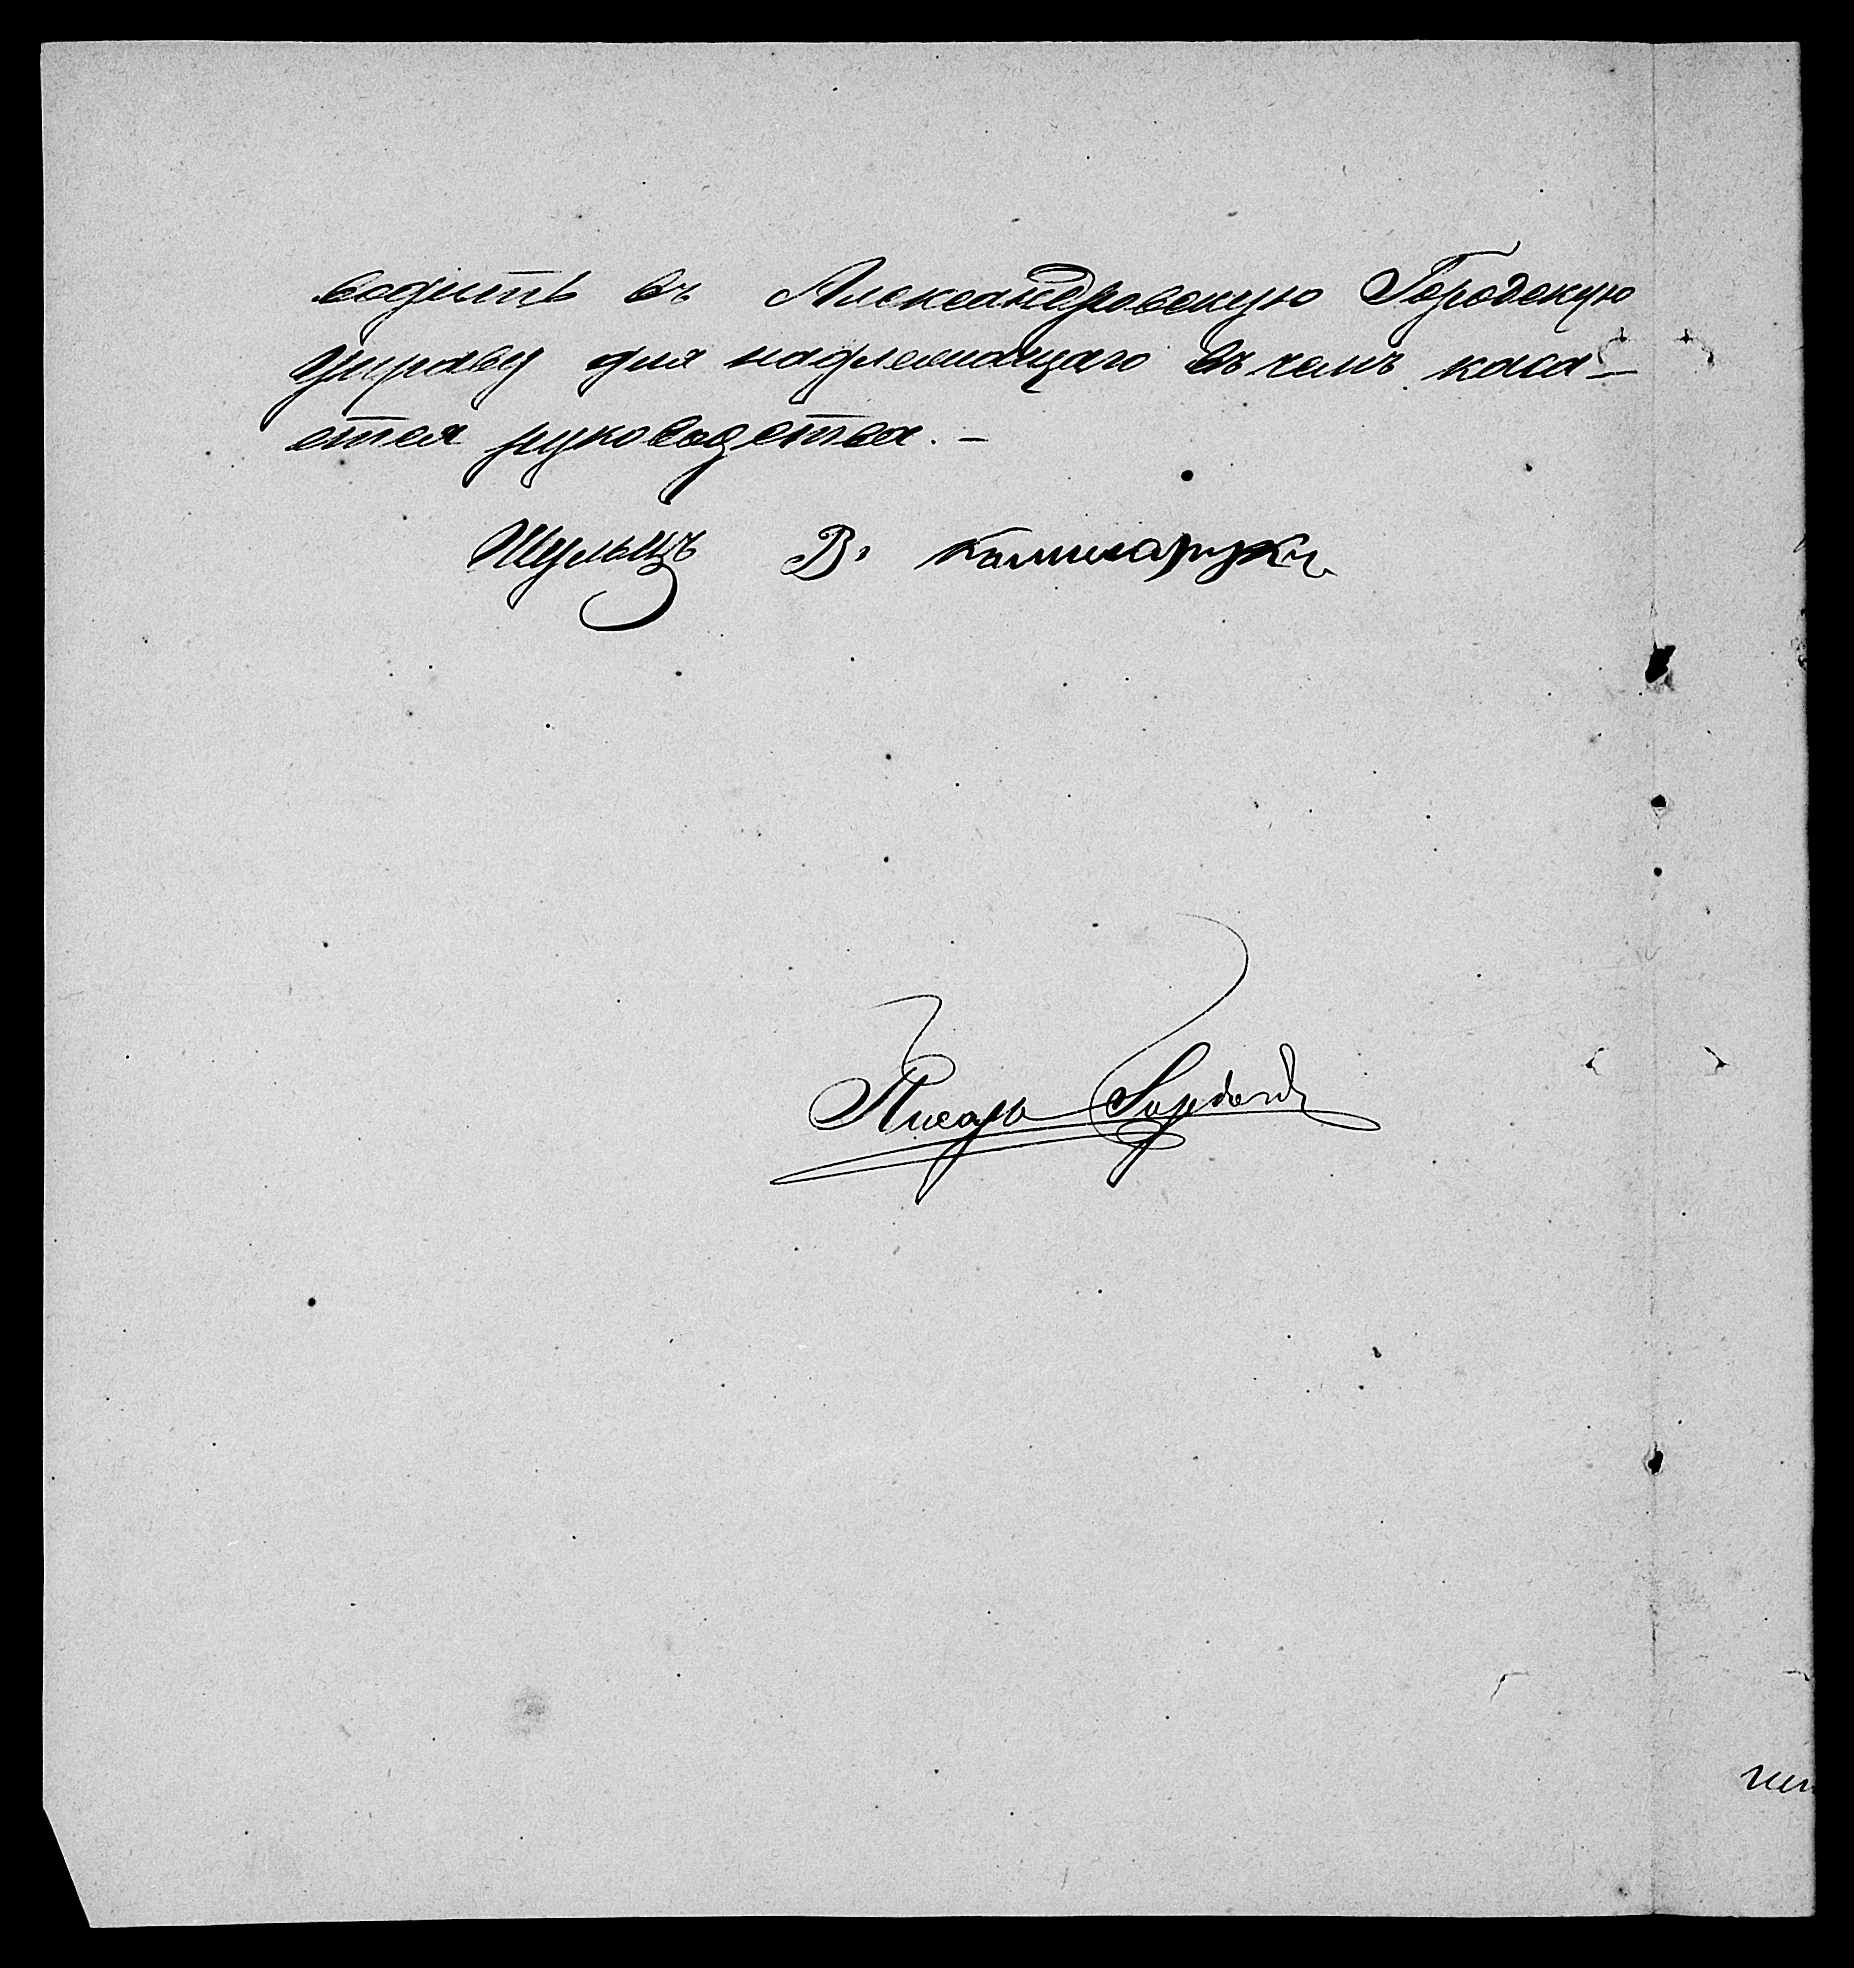 водитъ въ Александровскую Городскую
Управу для надлежащаго въ чемъ каса-
ется руководства. -
Шульцъ В.
Писарь Горбач